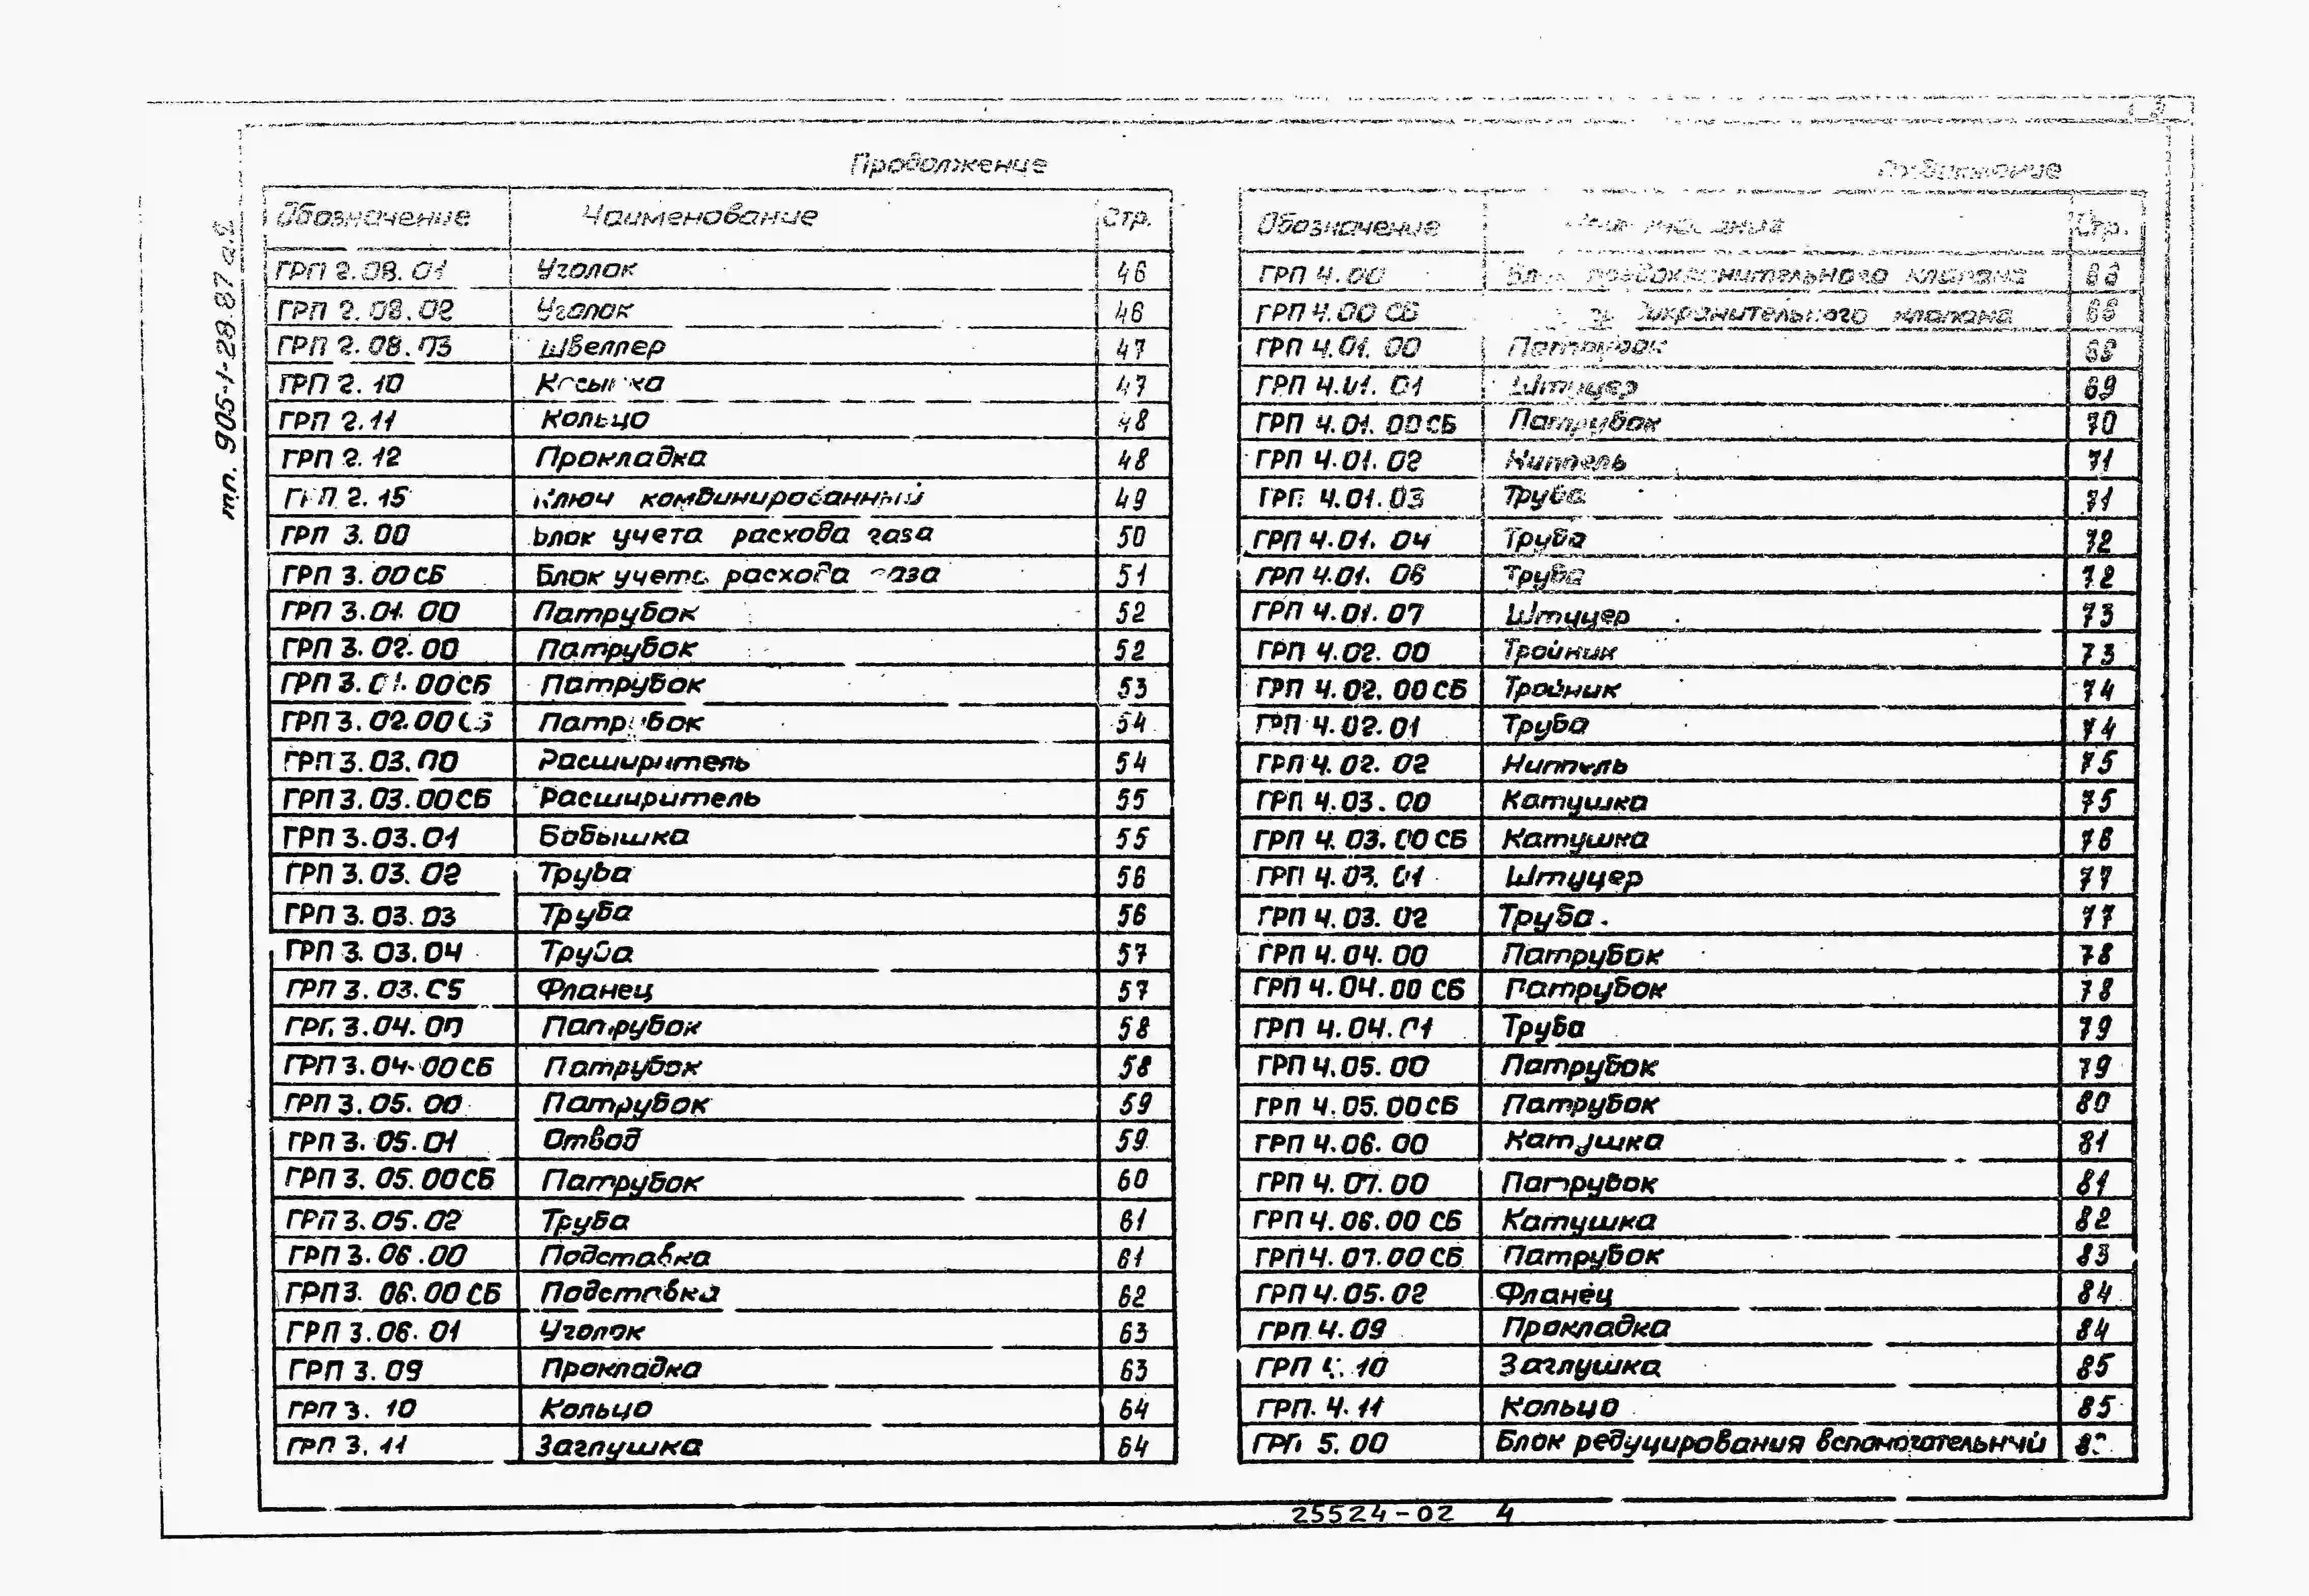 Продолжение
Обозначение Наименование Стр.
ГРП 2.08.01 Уголок 46
ГРП 2.08.02 Уголок 46
ГРП 2.08.03 Швеллер 47
ГРП 2.10 47
ГРП 2.11 Кольцо 48
ГРП 2.12 Прокладка 48
ГРП 2.15 Ключ комбинированный 49
ГРП 3.00 Блок учета расхода газа 50
ГРП 3.00СБ Блок учета расхода газа 51
ГРП 3.01.00 Патрубок 52
ГРП 3.02.00 Патрубок 52
ГРП 3.01.00СБ Патрубок 53
ГРП 3.02.00СБ Патрубок 54
ГРП 3.03.00 Расширитель 54
ГРП 3.03.00СБ Расширитель 55
ГРП 3.03.01 Бобышка 55
ГРП 3.03.02 Труба 56
ГРП 3.03.03 Труба 56
ГРП 3.03.04 Труба 57
ГРП 3.03.05 Фланец 57
ГРП 3.04.00 Патрубок 58
ГРП 3.04.00СБ Патрубок 58
ГРП 3.05.00 Патрубок 59
ГРП 3.05.01 Отвод 59
ГРП 3.05.00СБ Патрубок 60
ГРП 3.05.02 Труба 61
ГРП 3.06.00 Подставка 61
ГРП 3.06.00СБ Подставка 62
ГРП 3.06.01 Уголок 63
ГРП 3.09 Прокладка 63
ГРП 3.10 Кольцо 64
ГРП 3.11 Заглушка 64
Продолжение
Обозначение Наименование Стр.
ГРП 4.00 Блок предохранительного клапана
ГРП 4.00 СБ предохранительного клапана
ГРП 4.01.00 Патрубок
ГРП 4.01.01 Штуцер 69
ГРП 4.01.00СБ Патрубок 70
ГРП 4.01.02 Ниппель 71
ГРП 4.01.03 Труба 71
ГРП 4.01.04 Труба 72
ГРП 4.01.06 Труба 72
ГРП 4.01.07 Штуцер 73
ГРП 4.02.00 Тройник 73
ГРП 4.02.00СБ Тройник 74
ГРП 4.02.01 Труба 74
ГРП 4.02.02 Ниппель 75
ГРП 4.03.00 Катушка 75
ГРП 4.03.00СБ Катушка 76
ГРП 4.03.01 Штуцер 77
ГРП 4.03.02 Труба 77
ГРП 4.04.00 Патрубок 78
ГРП 4.04.00 СБ Патрубок 78
ГРП 4.04.01 Труба 79
ГРП 4.05.00 Патрубок 79
ГРП 4.05.00СБ Патрубок 80
ГРП 4.06.00 Катушка 81
ГРП 4.07.00 Патрубок 81
ГРП 4.06.00 СБ Катушка 82
ГРП 4.07.00СБ Патрубок 83
ГРП 4.05.02 Фланец 84
ГРП 4.09 Прокладка 84
ГРП 4.10 Заглушка 85
ГРП 4.11 Кольцо 85
ГРП 5.00 Блок редуцирования вспомогательный
т.п. 905-1-28.87 а.2
25524-02 4